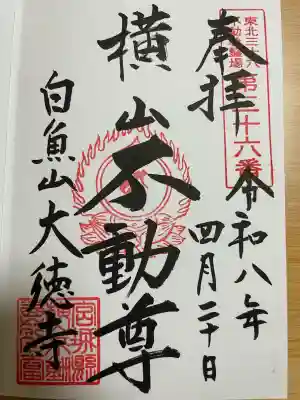 東北三十六
不動尊霊場
第二十六番
奉拝
令和八年
四月二十日
横山不動尊
白魚山大徳寺